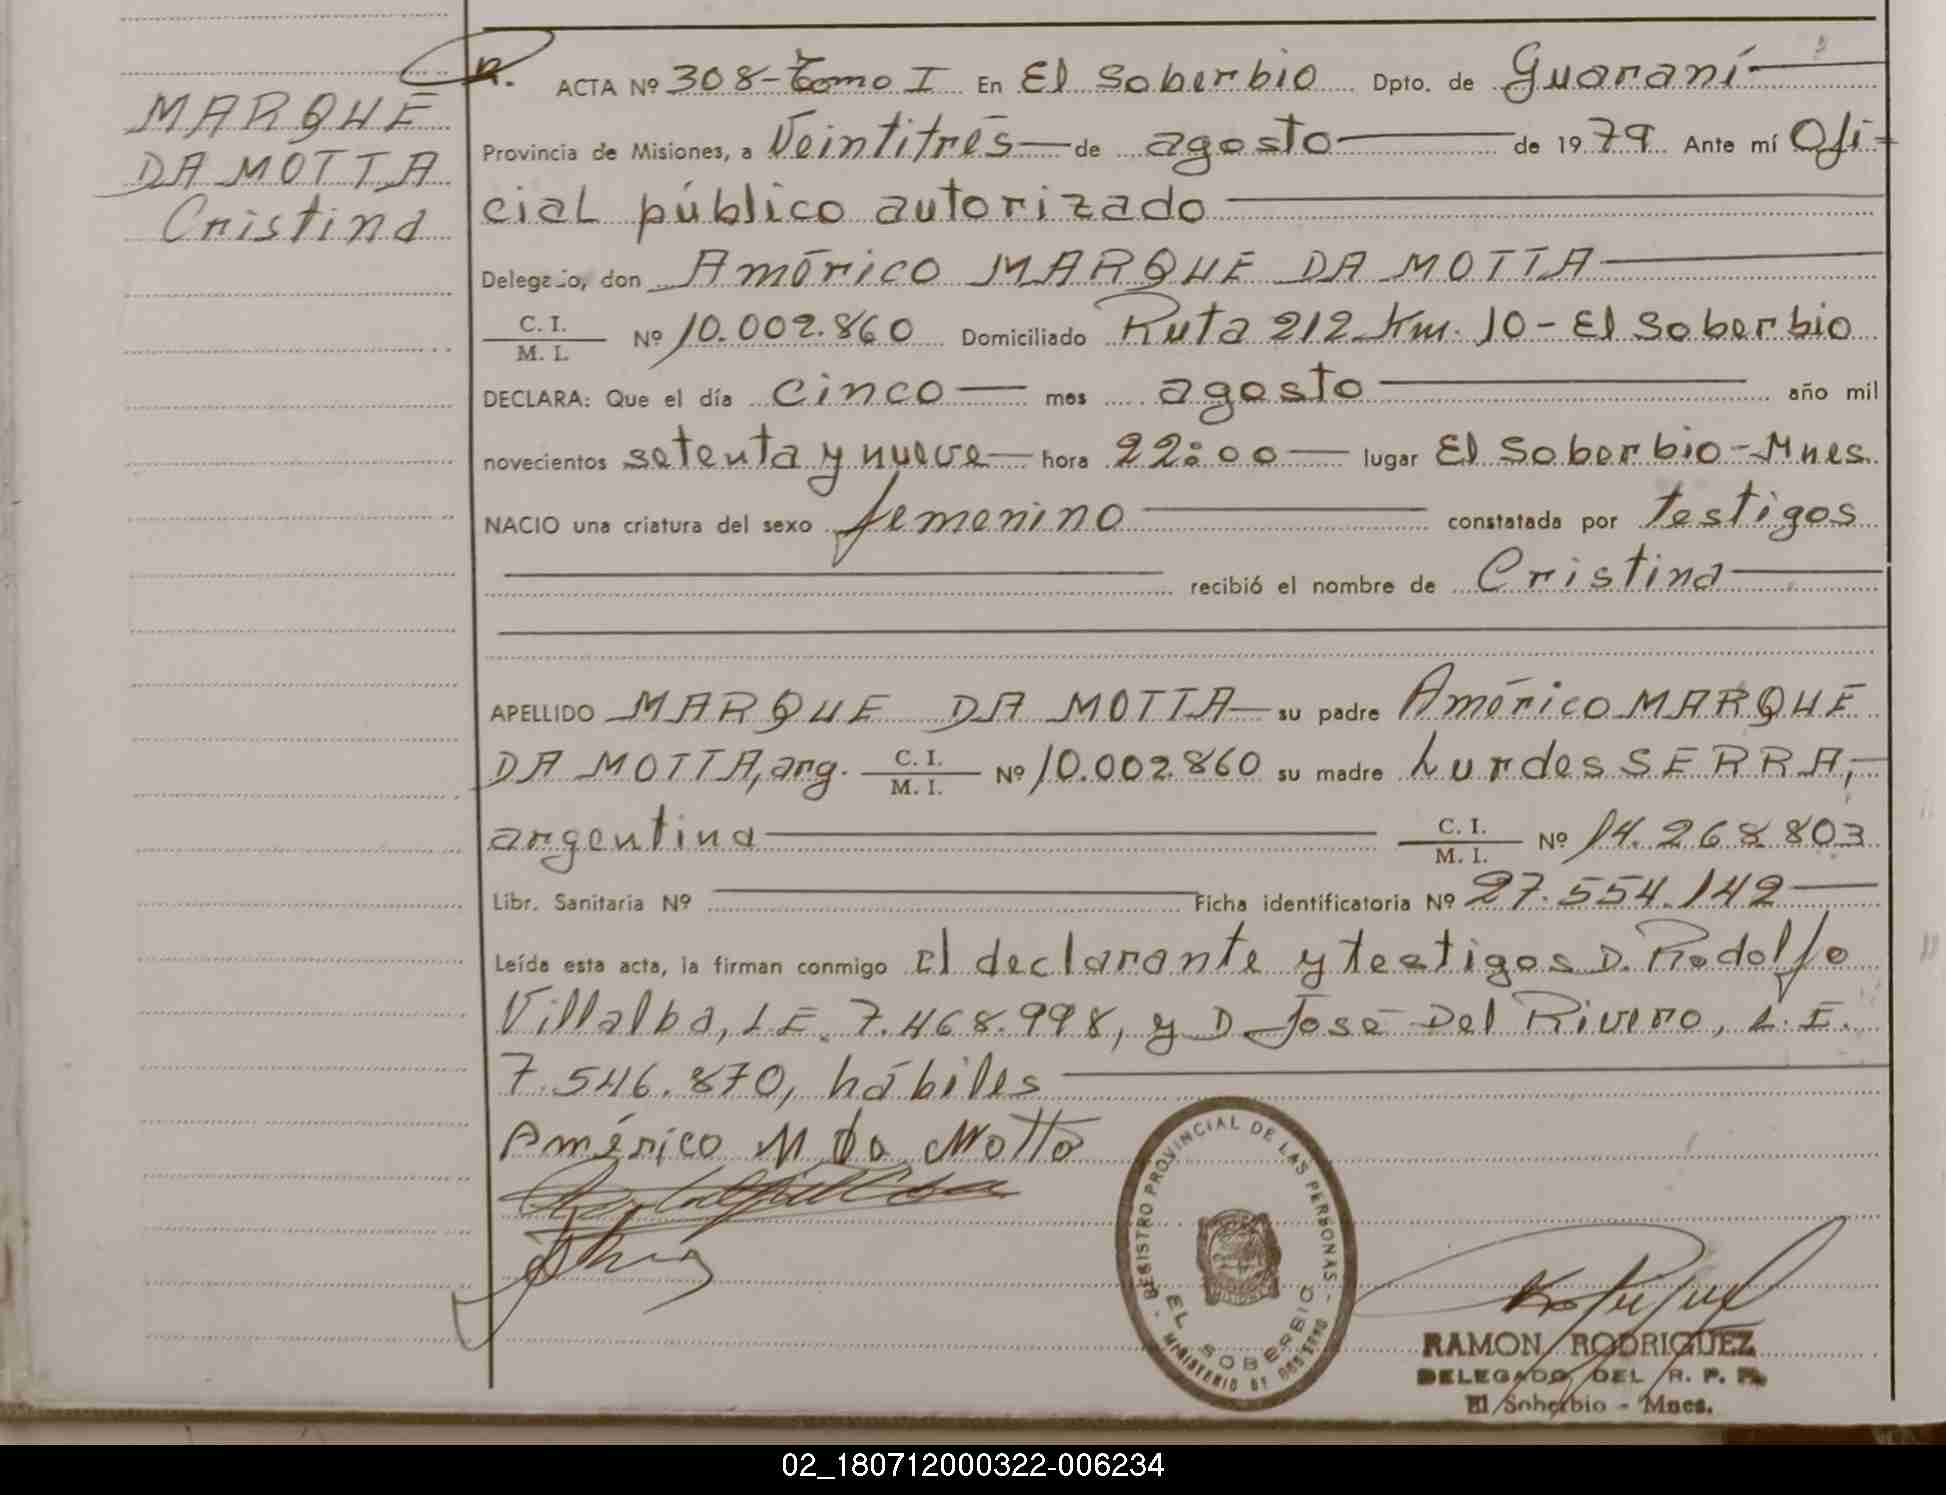 MARQUE
DA MOTTA
Cristina
N. ACTA Nº 308-Tomo I En El Soberbio Dpto. de Guaraní
Provincia de Misiones, a Veintitrés de agosto de 1979 Ante mí Ofi-
cial público autorizado
Delegado, don Américo MARQUE DA MOTTA
C. I.
M. I. Nº 10.002.860 Domiciliado Ruta 212 Km. 10-El Soberbio
DECLARA: Que el día cinco mes agosto año mil
novecientos setenta y nueve hora 22:00 lugar El Soberbio-Mnes.
NACIO una criatura del sexo femenino constatada por testigos
recibió el nombre de Cristina
APELLIDO MARQUE DA MOTTA su padre Américo MARQUE
DA MOTTA, arg. C. I.
M. I. Nº 10.002.860 su madre Lurdes SERRA,
argentina C. I.
M. I. Nº 14.268.803
Libr. Sanitaria Nº Ficha identificatoria Nº 27.554.142
Leída esta acta, la firman conmigo El declarante y testigos D. Rodolfo
Villalba, L.E. 7.468.998, y D. José Del Rivero, L.E.
7.546.870, hábiles
Américo M da Motta
REGISTRO PROVINCIAL DE LAS PERSONAS
EL SOBERBIO
MINISTERIO DE GOBIERNO
RAMON RODRIGUEZ
DELEGADO DEL R. P. P.
El Soberbio - Mnes.
02_180712000322-006234